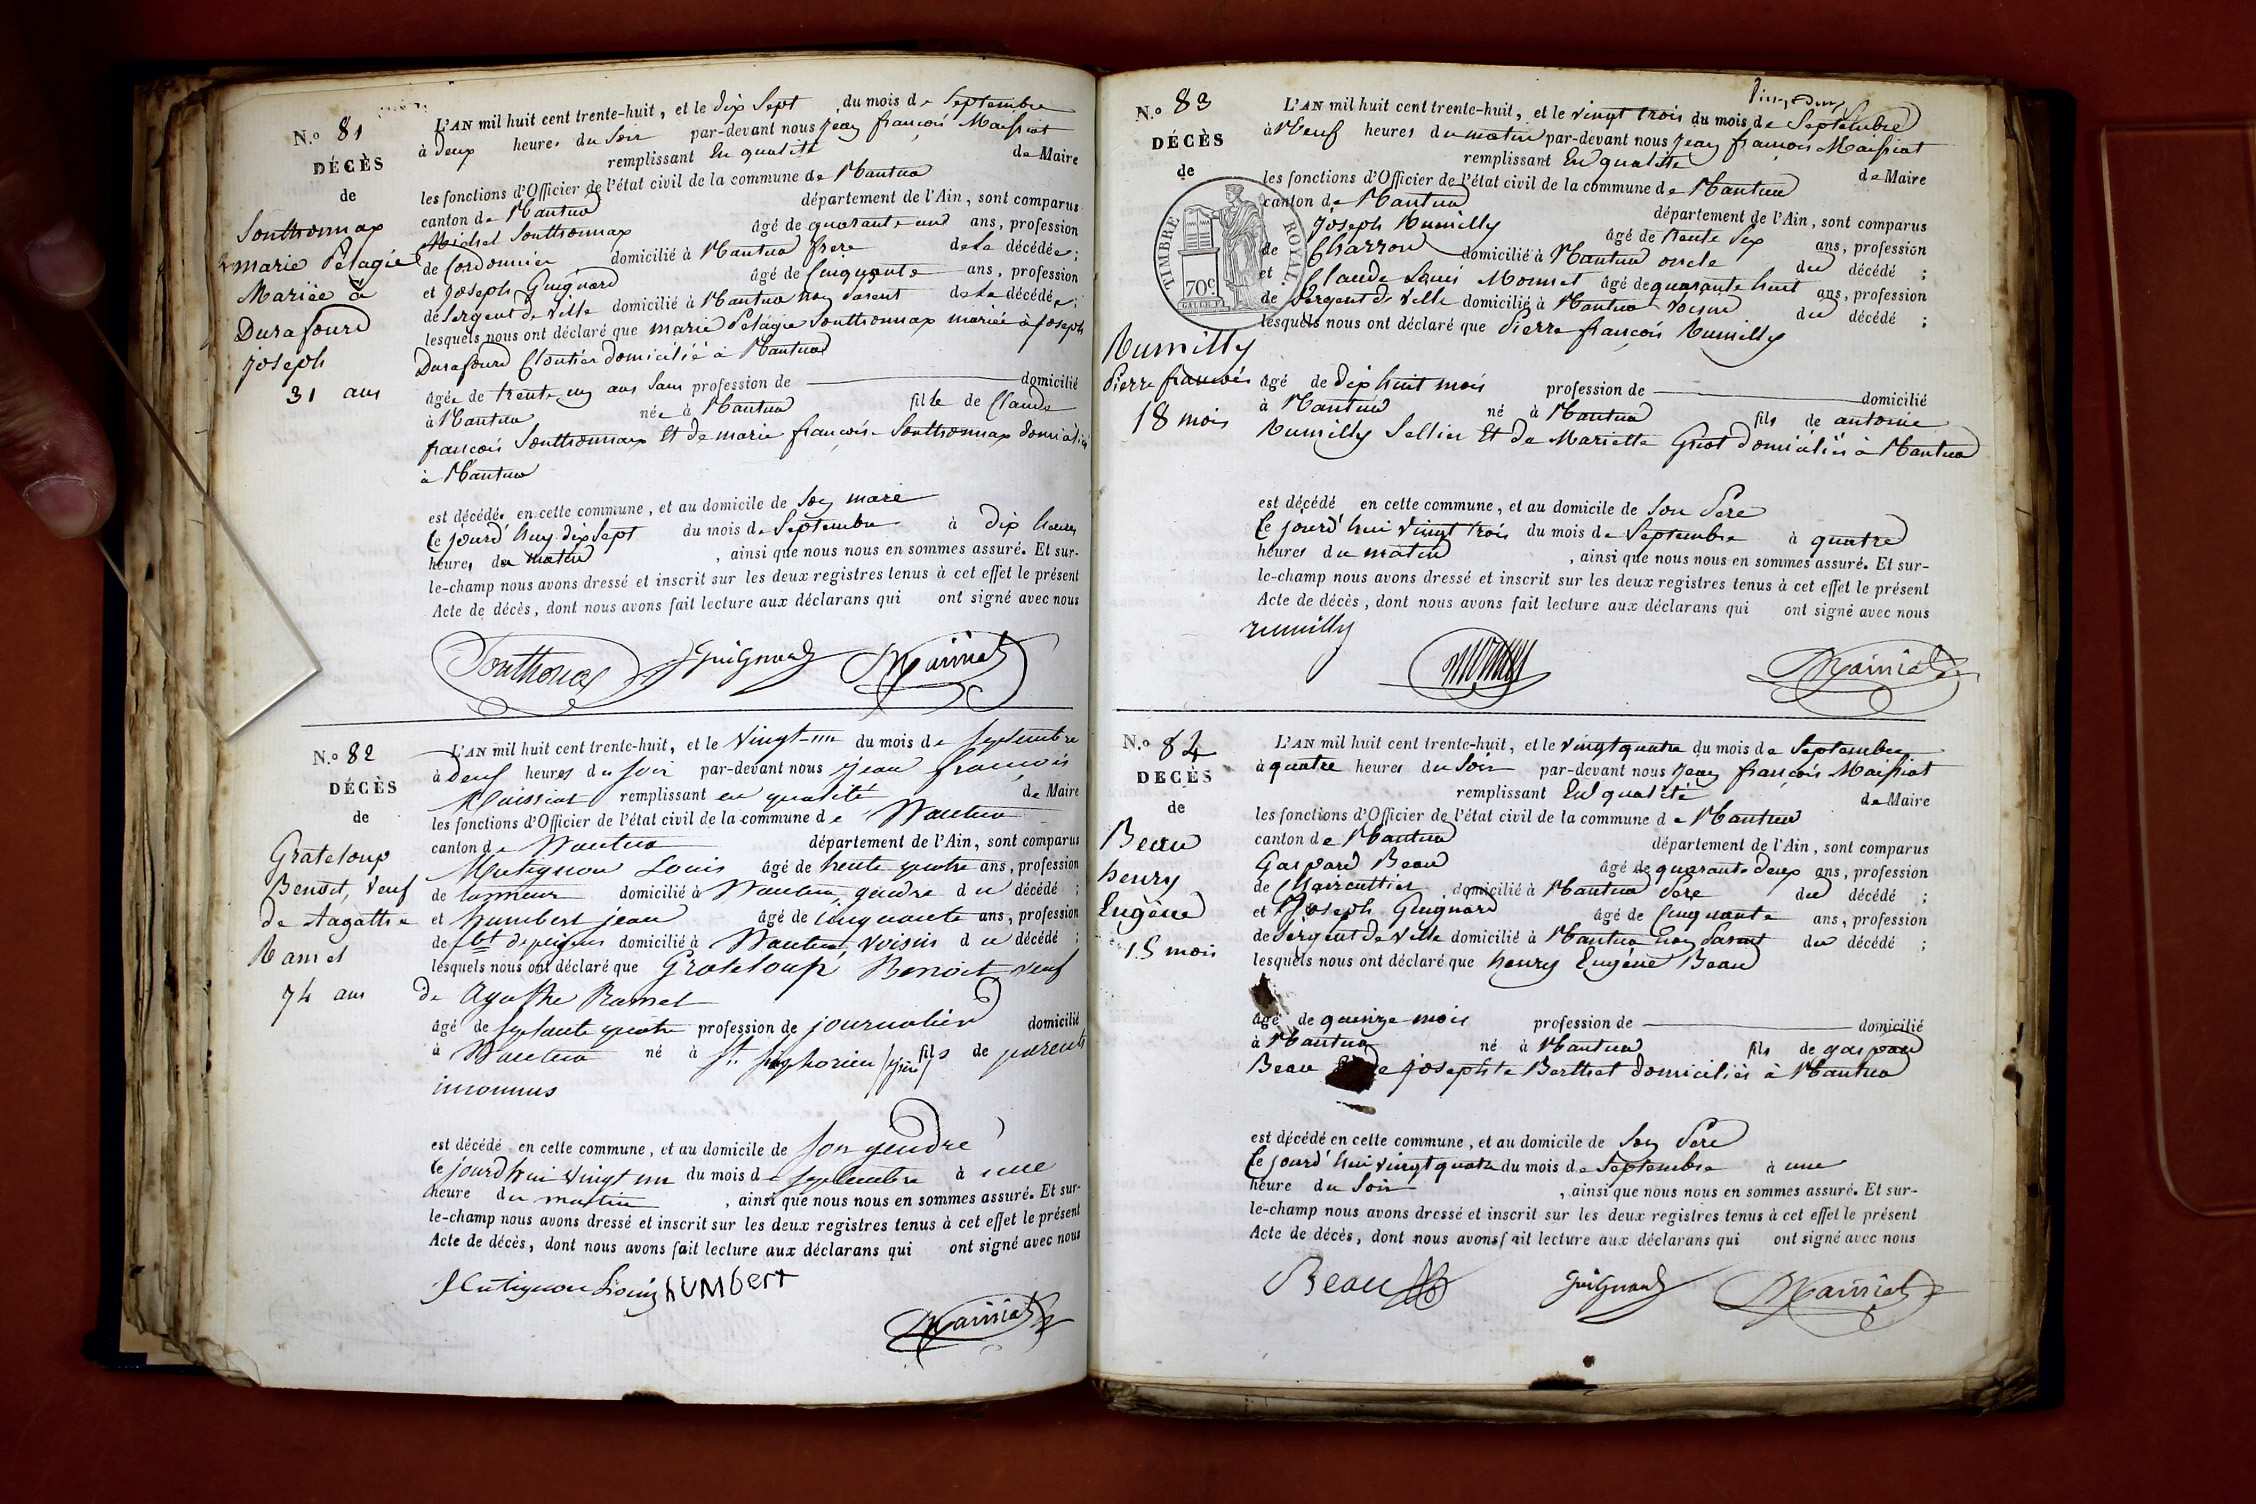 N.o 81
DÉCÈS
de
Southonnax
marie Pelagie
Mariée à
Durafourd
joseph
31 ans
L'AN mil huit cent trente-huit, et le dix sept du mois de Septembre
à deux heures du Soir par-devant nous Jean françois Maissiat
remplissant En qualité de Maire
les fonctions d'Officier de l'état civil de la commune de Nantua
canton de Nantua département de l'Ain, sont comparus
Michel Southonnax âgé de quarante un ans, profession
de Cordonnier domicilié à Nantua frere de La décédée;
et Joseph Guignard âgé de Cinquante ans, profession
de Sergent de Ville domicilié à Nantua non parent de La décédée;
lesquels nous ont déclaré que marie Pelagie Southonnax mariée à joseph
Durafourd Cloutier domicilié à Nantua
âgée de trente un ans Sans profession de domicilié
à Nantua née à Nantua fille de Claude
françois Southonnax Et de marie françoise Southonnax domiciliés
à Nantua
est décédée en cette commune, et au domicile de Son mari
Ce jourd'huy dix sept du mois de Septembre à dix heures
heures du matin, ainsi que nous nous en sommes assuré. Et sur-
le-champ nous avons dressé et inscrit sur les deux registres tenus à cet effet le présent
Acte de décès, dont nous avons fait lecture aux déclarans qui ont signé avec nous
Southonax Guignard Maissiat
N.o 82
DÉCÈS
de
Grateloup
Benoit, Veuf
de Agathe
Ramel
74 ans
L'AN mil huit cent trente-huit, et le Vingt-un du mois de Septembre
à deux heures du soir par-devant nous Jean françois
Maissiat remplissant en qualité de Maire
les fonctions d'Officier de l'état civil de la commune de Nantua
canton de Nantua département de l'Ain, sont comparus
Mutignon Louis âgé de trente quatre ans, profession
de domicilié à Nantua gendre du décédé;
et humbert jean âgé de cinquante ans, profession
de fbt de peignes domicilié à Nantua, Voisin du décédé;
lesquels nous ont déclaré que Grateloup Benoit veuf
de Agathe Ramel
âgé de septante quatre profession de journalier domicilié
à Nantua né à St. fils de parents
inconnus
est décédé en cette commune, et au domicile de son gendre
Ce jourd'hui Vingt un du mois de Septembre à une
heure du matin, ainsi que nous nous en sommes assuré. Et sur-
le-champ nous avons dressé et inscrit sur les deux registres tenus à cet effet le présent
Acte de décès, dont nous avons fait lecture aux déclarans qui ont signé avec nous
Mutignon Louis hUMbert
Maissiat
N.o 83
DÉCÈS
de
TIMBRE ROYAL.
70c.
Rumilly
Pierre francois
18 mois
L'AN mil huit cent trente-huit, et le vingt trois du mois de Septembre
à Neuf heures du matin par-devant nous Jean françois Maissiat
remplissant En qualité de Maire
les fonctions d'Officier de l'état civil de la commune de Nantua
canton de Nantua département de l'Ain, sont comparus
Joseph Rumilly âgé de trente Six ans, profession
de Charron domicilié à Nantua oncle du décédé;
et Claude Louis Monnet âgé de quarante huit ans, profession
de Sergent de Ville domicilié à Nantua Voisin du décédé;
lesquels nous ont déclaré que Pierre françois Rumilly
âgé de dix huit mois profession de domicilié
à Nantua né à Nantua fils de antoine
Rumilly Sellier Et de Mariette Guot domiciliés à Nantua
est décédé en cette commune, et au domicile de Son Pere
Ce jourd'hui Vingt trois du mois de Septembre à quatre
heures du matin, ainsi que nous nous en sommes assuré. Et sur-
le-champ nous avons dressé et inscrit sur les deux registres tenus à cet effet le présent
Acte de décès, dont nous avons fait lecture aux déclarans qui ont signé avec nous
rumilly
Maissiat
N.o 84
DÉCÈS
de
Beau
henry
Eugène
15 mois
L'AN mil huit cent trente-huit, et le vingt quatre du mois de Septembre
à quatre heures du Soir par-devant nous Jean françois Maissiat
remplissant En qualité de Maire
les fonctions d'Officier de l'état civil de la commune de Nantua
canton de Nantua département de l'Ain, sont comparus
Gaspard Beau âgé de quarante deux ans, profession
de Chaircuttier domicilié à Nantua Pere du décédé;
et Joseph Guignard âgé de Cinquante ans, profession
de Sergent de Ville domicilié à Nantua non Parent du décédé;
lesquels nous ont déclaré que henry Eugène Beau
âgé de quinze mois profession de domicilié
à Nantua né à Nantua fils de gaspard
Beau josephte Berthet domiciliés à Nantua
est décédé en cette commune, et au domicile de Son Pere
Ce jourd'hui vingt quatre du mois de Septembre à une
heure du Soir, ainsi que nous nous en sommes assuré. Et sur-
le-champ nous avons dressé et inscrit sur les deux registres tenus à cet effet le présent
Acte de décès, dont nous avons fait lecture aux déclarans qui ont signé avec nous
Beau Guignard Maissiat